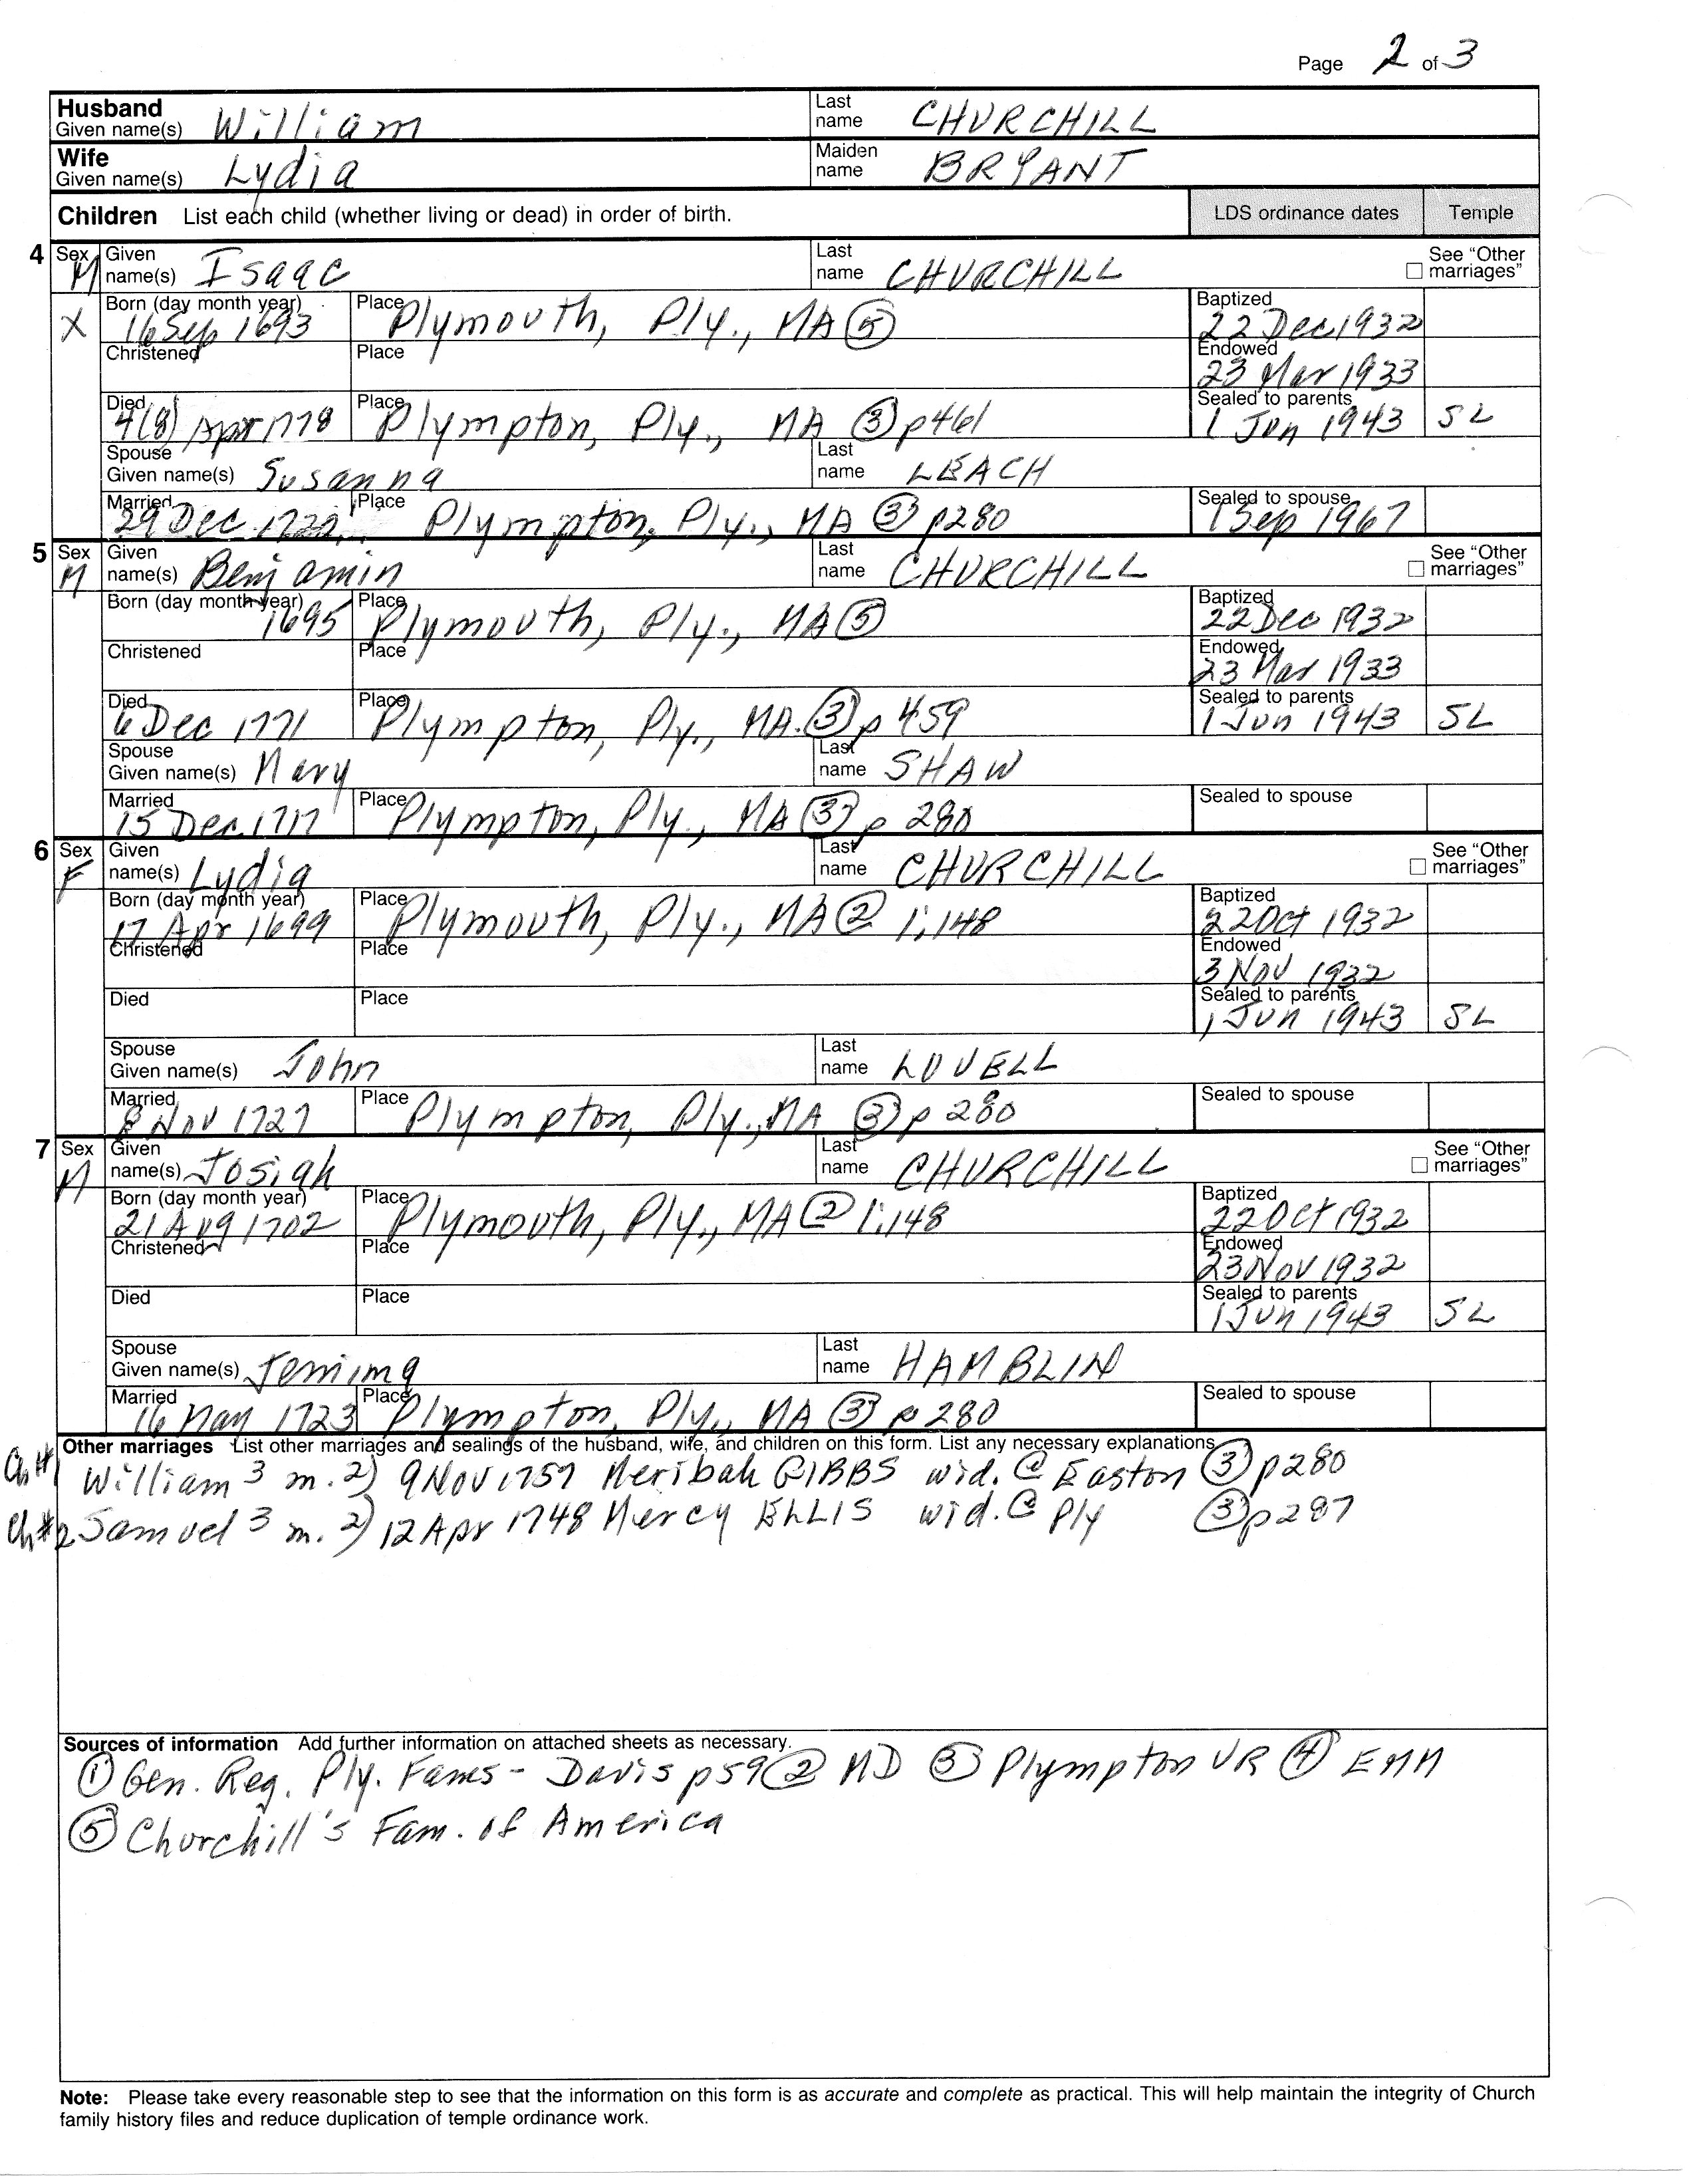 Page 2 of 3
Husband Given name(s) William Last name CHURCHILL
Wife Given name(s) Lydia Maiden name BRYANT
Children List each child (whether living or dead) in order of birth. LDS ordinance dates Temple
4 Sex M Given name(s) Isaac Last name CHURCHILL See "Other marriages"
X Born (day month year) 16 Sep 1693 Place Plymouth, Ply., MA ⑤ Baptized 22 Dec 1932
Christened Place Endowed 23 Mar 1933
Died 4(8) Apr 1778 Place Plympton, Ply., MA ③ p461 Sealed to parents 1 Jun 1943 SL
Spouse Given name(s) Susanna Last name LEACH
Married 29 Dec Place Plympton, Ply., MA ③ p280 Sealed to spouse 1 Sep 1967
5 Sex M Given name(s) Benjamin Last name CHURCHILL See "Other marriages"
Born (day month year) 1695 Place Plymouth, Ply., MA ⑤ Baptized 22 Dec 1932
Christened Place Endowed 23 Mar 1933
Died 6 Dec 1771 Place Plympton, Ply., MA. ③ p 459 Sealed to parents 1 Jun 1943 SL
Spouse Given name(s) Mary Last name SHAW
Married 15 Dec 1717 Place Plympton, Ply., MA ③ p 280 Sealed to spouse
6 Sex F Given name(s) Lydia Last name CHURCHILL See "Other marriages"
Born (day month year) 17 Apr 1699 Place Plymouth, Ply., MA ② 1:148 Baptized 22 Oct 1932
Christened Place Endowed 3 Nov 1932
Died Place Sealed to parents 1 Jun 1943 SL
Spouse Given name(s) John Last name LOVELL
Married 8 Nov 1727 Place Plympton, Ply., MA ③ p 280 Sealed to spouse
7 Sex M Given name(s) Josiah Last name CHURCHILL See "Other marriages"
Born (day month year) 21 Aug 1702 Place Plymouth, Ply., MA ② 1:148 Baptized 22 Oct 1932
Christened Place Endowed 23 Nov 1932
Died Place Sealed to parents 1 Jun 1943 SL
Spouse Given name(s) Jemima Last name HAMBLIN
Married 16 May 1723 Place Plympton, Ply., MA ③ p 280 Sealed to spouse
Other marriages List other marriages and sealings of the husband, wife, and children on this form. List any necessary explanations.
Ch #1 William 3 m. 2) 9 Nov 1757 Meribah GIBBS wid. @ Easton ③ p280
Ch #2 Samuel 3 m. 2) 12 Apr 1748 Mercy ELLIS wid. @ Ply ③ p287
Sources of information Add further information on attached sheets as necessary.
① Gen. Reg. Ply. Fams - Davis p59 ② MD ③ Plympton VR ④ EMM
⑤ Churchill's Fam. of America
Note: Please take every reasonable step to see that the information on this form is as accurate and complete as practical. This will help maintain the integrity of Church
family history files and reduce duplication of temple ordinance work.